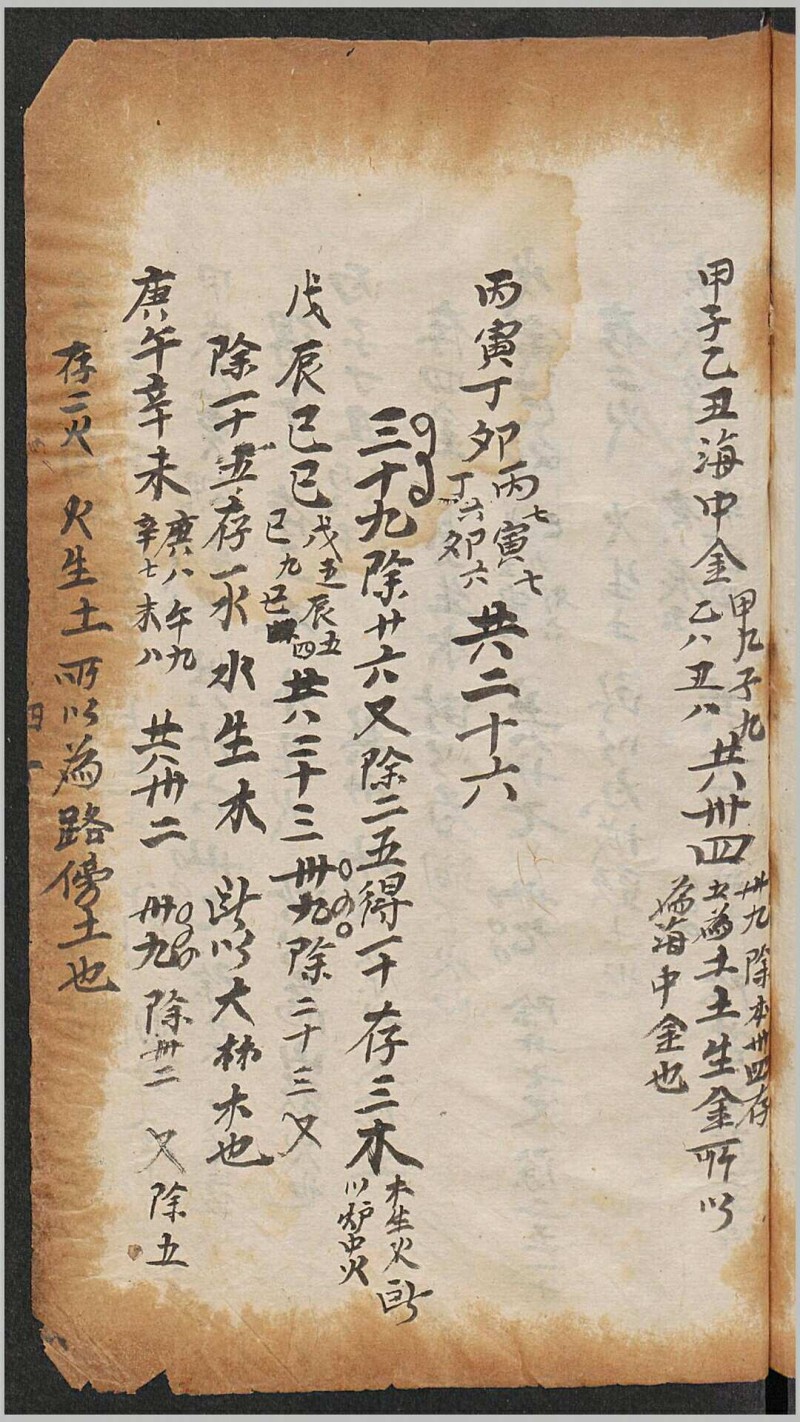 甲子乙丑海中金 甲九子九 乙八丑八 共卅四 卅九除本卅四存 五為土土生金所以 為海中金也
丙寅丁卯 丙七寅七 丁六卯六 共二十六
三十九除廿六又除二五得一十存三木 木生火 所以炉中火
戊辰己巳 戊五辰五 己九巳四 共二十三 卅九除二十三又
除一十五存一水水生木 此以大林木也
庚午辛未 庚八午九 辛七未八 共卅二 卅九除卅二 又除五
存二火 火生土所以為路傍土也